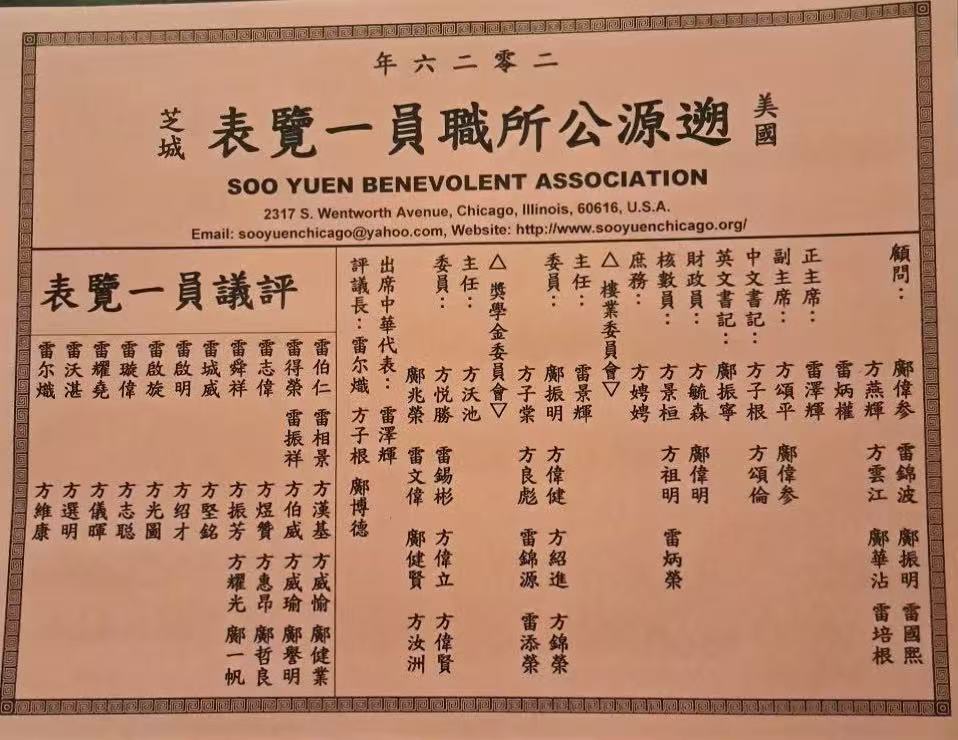 二零二六年
美國
遡源公所職員一覽表
芝城
SOO YUEN BENEVOLENT ASSOCIATION
2317 S. Wentworth Avenue, Chicago, Illinois, 60616, U.S.A.
Email: sooyuenchicago@yahoo.com, Website: http://www.sooyuenchicago.org/
顧問：
鄺偉參 雷錦波 鄺振明 雷國熙
方燕輝 方雲江 鄺華沾 雷培根
雷炳權
正主席： 雷澤輝
副主席： 方頌平 鄺偉參
中文書記： 方子根 方頌倫
英文書記： 鄺振寧
財政員： 方毓森 鄺偉明
核數員： 方景桓 方祖明 雷炳榮
庶務： 方娉娉
△樓業委員會▽
主任： 雷景輝
委員： 鄺振明 方偉健 方紹進 方錦榮
方子棠 方良彪 雷錦源 雷添榮
△獎學金委員會▽
主任： 方沃池
委員： 方悦勝 雷錫彬 方偉立 方偉賢
鄺兆榮 雷文偉 鄺健賢 方汝洲
出席中華代表： 雷澤輝
評議長： 雷尔熾 方子根 鄺博德
評議員一覽表
雷伯仁 雷得榮 雷志偉 雷舜祥 雷城威 雷啟明 雷啟旋 雷璇偉 雷耀堯 雷沃湛 雷尔熾
雷相景 雷振祥
方漢基 方伯威 方煜贊 方振芳 方堅銘 方绍才 方光圖 方志聪 方儀暉 方選明 方維康
方威愉 方威瑜 方惠昂 方耀光
鄺健業 鄺譽明 鄺哲良 鄺一帆